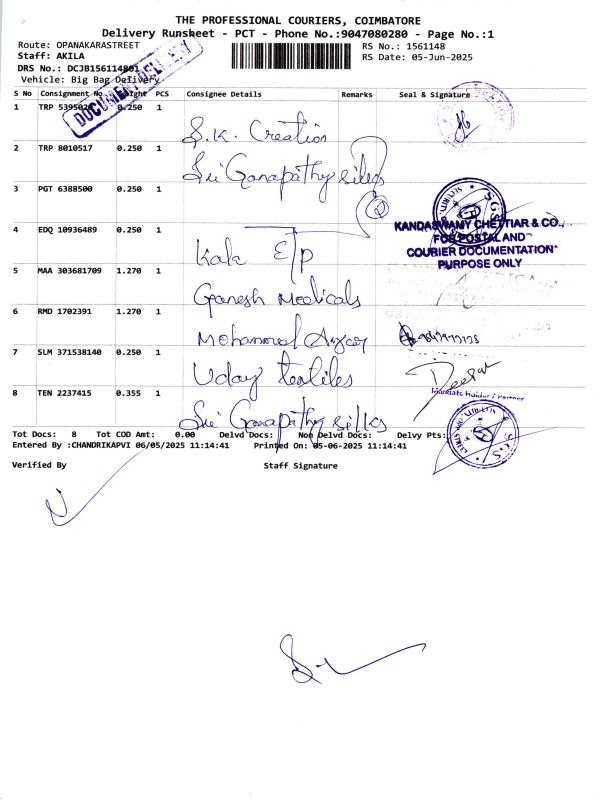 THE PROFESSIONAL COURIERS, COIMBATORE
Delivery Runsheet - PCT - Phone No.:9047080280 - Page No.:1
Route: OPANAKARASTREET RS No.: 1561148
Staff: AKILA RS Date: 05-Jun-2025
DRS No.: DCJB156114801
Vehicle: Big Bag Delivery
DOCUMENT DELIVERY
S No Consignment No. Weight PCS Consignee Details Remarks Seal & Signature
1 TRP 0.250 1 S.K. Creation
2 TRP 8010517 0.250 1 Sri Ganapathy silks
3 PGT 6388500 0.250 1
KANDASWAMY CHETTIAR & CO.,
FOR POSTAL AND
COURIER DOCUMENTATION
PURPOSE ONLY
4 EDQ 10936489 0.250 1 Kala
5 MAA 303681709 1.270 1 Ganesh Medicals
6 RMD 1702391 1.270 1 Mohammed
7 SLM 371538140 0.250 1 Uday textiles
Deepak
Mandate Holder / Partner
8 TEN 2237415 0.355 1 Sri Ganapathy silks
S.G.S.
Tot Docs: 8 Tot COD Amt: 0.00 Delvd Docs: Non Delvd Docs: Delvy Pts:
Entered By :CHANDRIKAPVI 06/05/2025 11:14:41 Printed On: 05-06-2025 11:14:41
Verified By Staff Signature